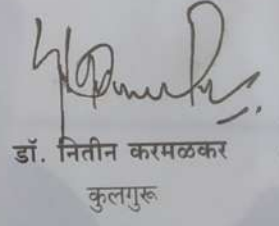 डॉ. नितीन करमळकर
कुलगुरू